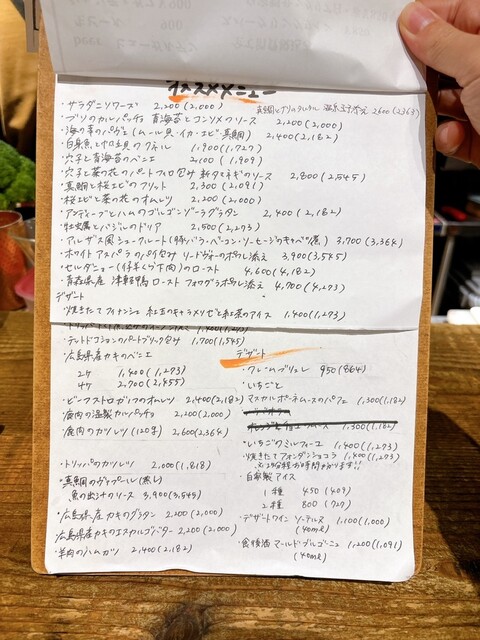 オススメメニュー
・サラダニソワーズ 2,200(2,000)
・ブリのカルパッチョ 青海苔とコンソメのソース 2,200(2,000)
2,600(2,363)
・海の幸のパヴェ(ムール貝・イカ・エビ・真鯛) 2,400(2,182)
・白身魚と帆立貝のクネル 1,900(1,727)
・穴子と青海苔のベニエ 2,100(1,909)
・穴子と菜の花のパートフィロ包み 新タマネギのソース 2,800(2,545)
・真鯛と桜エビのフリット 2,300(2,091)
・桜エビと菜の花のオムレツ 2,200(2,000)
・アンディーブとハムのゴルゴンゾーラグラタン 2,400(2,182)
・牡蠣とバジルのドリア 2,500(2,273)
・アルザス風シュークルート(豚バラ・ベーコン・ソーセージのキャベツ煮) 3,700(3,364)
・ホワイトアスパラのパイ包み リードヴォーのポワレ添え 3,900(3,545)
・セルダニョー(仔羊くら下肉)のロースト 4,600(4,182)
・青森県産 津軽鴨 ロースト フォワグラポワレ添え 4,700(4,273)
デザート
・焼きたてフィナンシェ 紅玉のキャラメリゼと紅茶のアイス 1,400(1,273)
1,400(1,273)
・テットドコションのパートブリック包み 1,700(1,545)
・広島県産カキのベニエ
2ケ 1,400(1,273)
4ケ 2,700(2,455)
・ビーフストロガノフのオムレツ 2,400(2,182)
・鹿肉の温製カルパッチョ 2,200(2,000)
・鹿肉のカツレツ(120g) 2,600(2,364)
・トリッパのカツレツ 2,000(1,818)
・真鯛のヴァプール(蒸し)
魚の出汁のソース 3,900(3,545)
・広島県産カキのグラタン 2,200(2,000)
・広島県産カキのエスカルゴバター 2,200(2,000)
・羊肉のハムカツ 2,400(2,182)
デザート
・クレームブリュレ 950(864)
・いちごと
・マスカルポーネムースのパフェ 1,300(1,182)
1,300(1,182)
・いちごのミルフィーユ 1,400(1,273)
・焼きたてフォンダンショコラ 1,400(1,273)
・自家製アイス
1種 450(409)
2種 800(727)
・デザートワイン ソーテルヌ 1,100(1,000)
(40ml)
・食後酒 マールドブルゴーニュ 1,200(1,091)
(40ml)